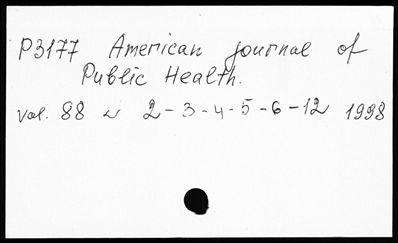 P3177 American journal of
Public Health.
vol. 88 N 2-3-4-5-6-12 1998